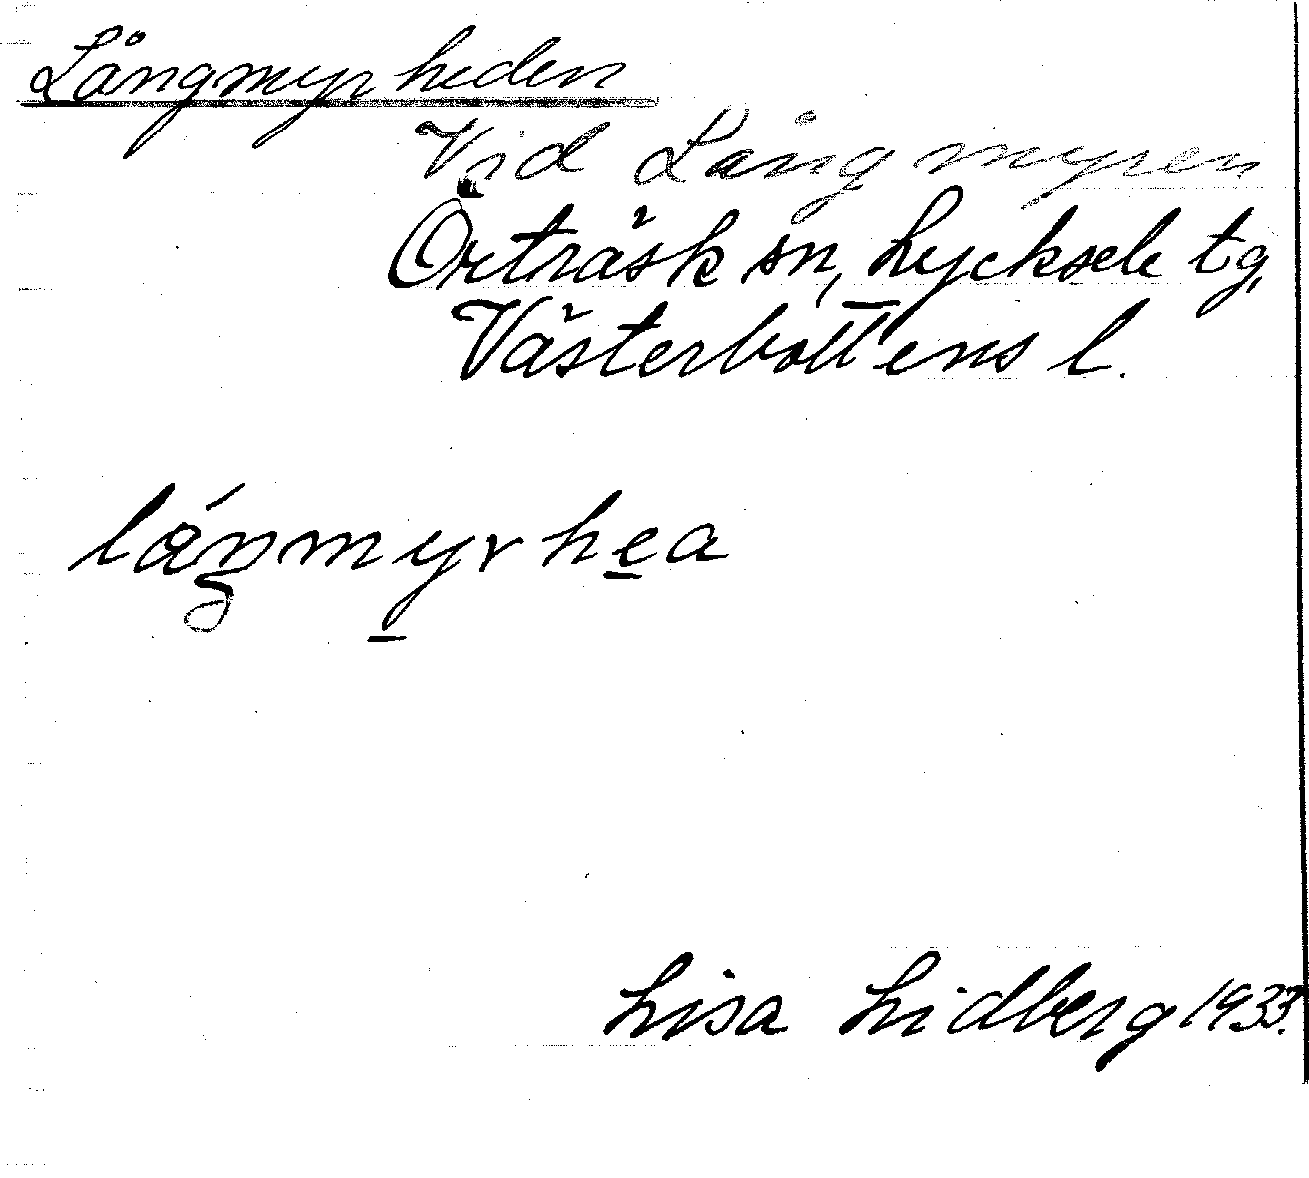 Långmyrheden
Vid Långmyren
Örträsk sn, Lycksele tg,
Västerbottens l.
láŋmyrhea
Lisa Lidberg 1933.